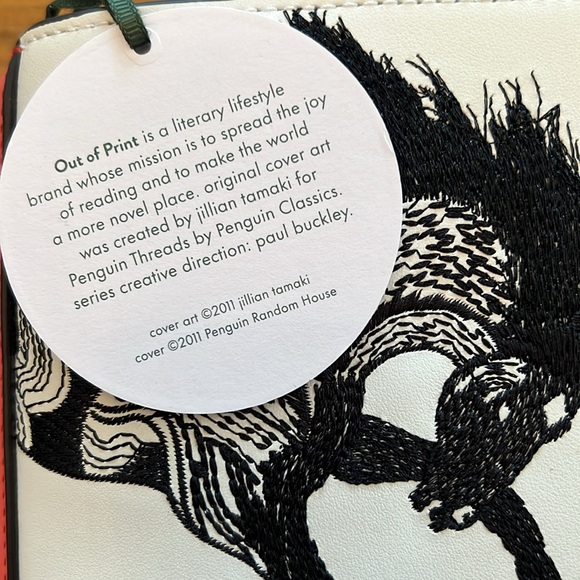 Out of Print is a literary lifestyle
brand whose mission is to spread the joy
of reading and to make the world
a more novel place. original cover art
was created by jillian tamaki for
Penguin Threads by Penguin Classics.
series creative direction: paul buckley.
cover art ©2011 jillian tamaki
cover ©2011 Penguin Random House